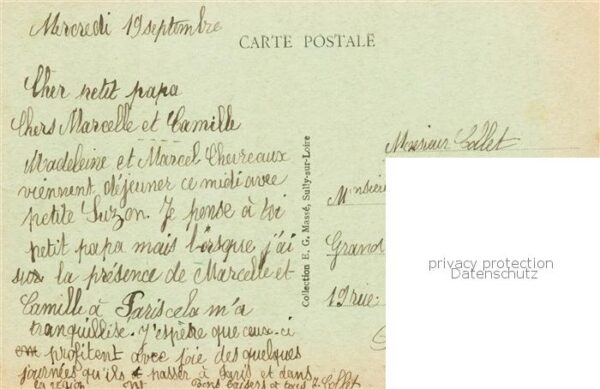 Mercredi 19 septembre
CARTE POSTALE
Cher petit papa
Chers Marcelle et Camille
Madeleine et Marcel Chevreaux
viennent déjeuner ce midi avec
petite Suzon. Je pense à toi
petit papa mais lorsque j'ai
su la présence de Marcelle et
Camille à Paris cela m'a
tranquillisé. J'espère que ceux-ci
profitent avec joie des quelques
journées qu'ils passer à Paris et dans
la région Bons baisers à tous Collet
Collection E. G. Massé, Sully-sur-Loire
Monsieur Collet
Grand
19 rue
privacy protection
Datenschutz